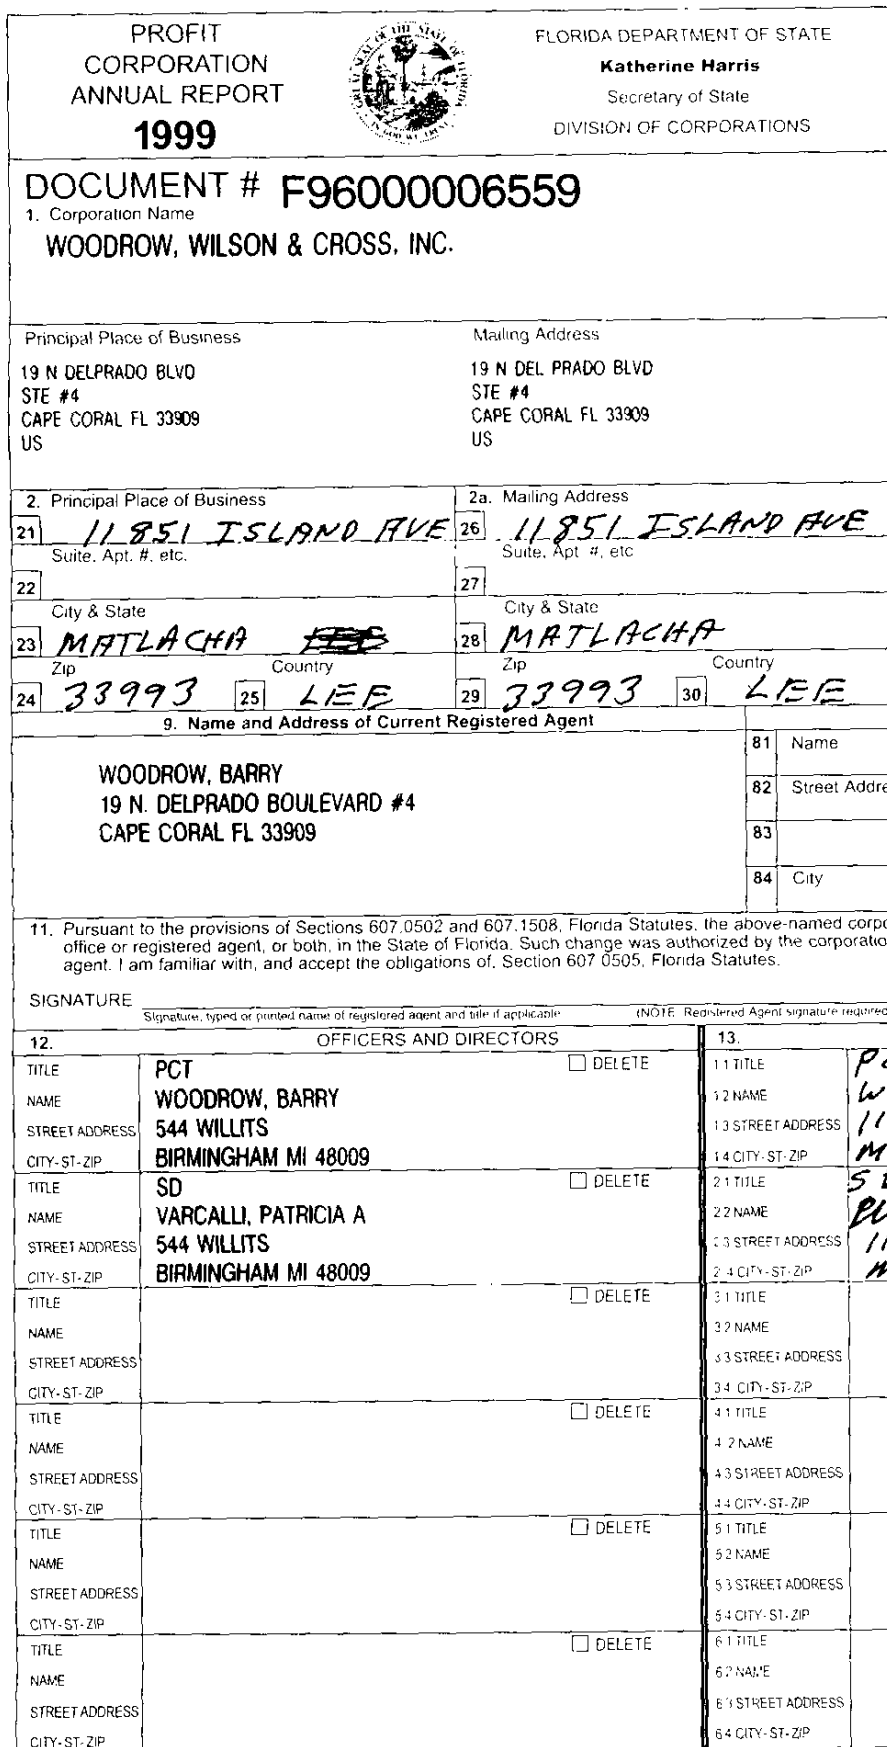 PROFIT
CORPORATION
ANNUAL REPORT
1999
FLORIDA DEPARTMENT OF STATE
Katherine Harris
Secretary of State
DIVISION OF CORPORATIONS
DOCUMENT # F96000006559
1. Corporation Name
WOODROW, WILSON & CROSS, INC.
Principal Place of Business
19 N DELPRADO BLVD
STE #4
CAPE CORAL FL 33909
US
Mailing Address
19 N DEL PRADO BLVD
STE #4
CAPE CORAL FL 33909
US
2. Principal Place of Business
21 11851 ISLAND AVE
Suite, Apt. #, etc.
22
City & State
23 MATLACHA
Zip Country
24 33993 25 LEE
2a. Mailing Address
26 11851 ISLAND AVE
Suite, Apt #, etc
27
City & State
28 MATLACHA
Zip Country
29 33993 30 LEE
9. Name and Address of Current Registered Agent
WOODROW, BARRY
19 N. DELPRADO BOULEVARD #4
CAPE CORAL FL 33909
81 Name
82 Street Addre
83
84 City
11. Pursuant to the provisions of Sections 607.0502 and 607.1508, Florida Statutes, the above-named corpo
office or registered agent, or both, in the State of Florida. Such change was authorized by the corporatio
agent. I am familiar with, and accept the obligations of, Section 607 0505, Florida Statutes.
SIGNATURE
Signature, typed or printed name of registered agent and title if applicable (NOTE Registered Agent signature required
12. OFFICERS AND DIRECTORS
TITLE PCT DELETE
NAME WOODROW, BARRY
STREET ADDRESS 544 WILLITS
CITY-ST-ZIP BIRMINGHAM MI 48009
TITLE SD DELETE
NAME VARCALLI, PATRICIA A
STREET ADDRESS 544 WILLITS
CITY-ST-ZIP BIRMINGHAM MI 48009
TITLE DELETE
NAME
STREET ADDRESS
CITY-ST-ZIP
TITLE DELETE
NAME
STREET ADDRESS
CITY-ST-ZIP
TITLE DELETE
NAME
STREET ADDRESS
CITY-ST-ZIP
TITLE DELETE
NAME
STREET ADDRESS
CITY-ST-ZIP
13.
1 1 TITLE
1 2 NAME W
1 3 STREET ADDRESS 11
1 4 CITY-ST-ZIP M
2 1 TITLE S
2 2 NAME
2 3 STREET ADDRESS 11
2 4 CITY-ST-ZIP M
3 1 TITLE
3 2 NAME
3 3 STREET ADDRESS
3 4 CITY-ST-ZIP
4 1 TITLE
4 2 NAME
4 3 STREET ADDRESS
4 4 CITY-ST-ZIP
5 1 TITLE
5 2 NAME
5 3 STREET ADDRESS
5 4 CITY-ST-ZIP
6 1 TITLE
6 2 NAME
6 3 STREET ADDRESS
6 4 CITY-ST-ZIP